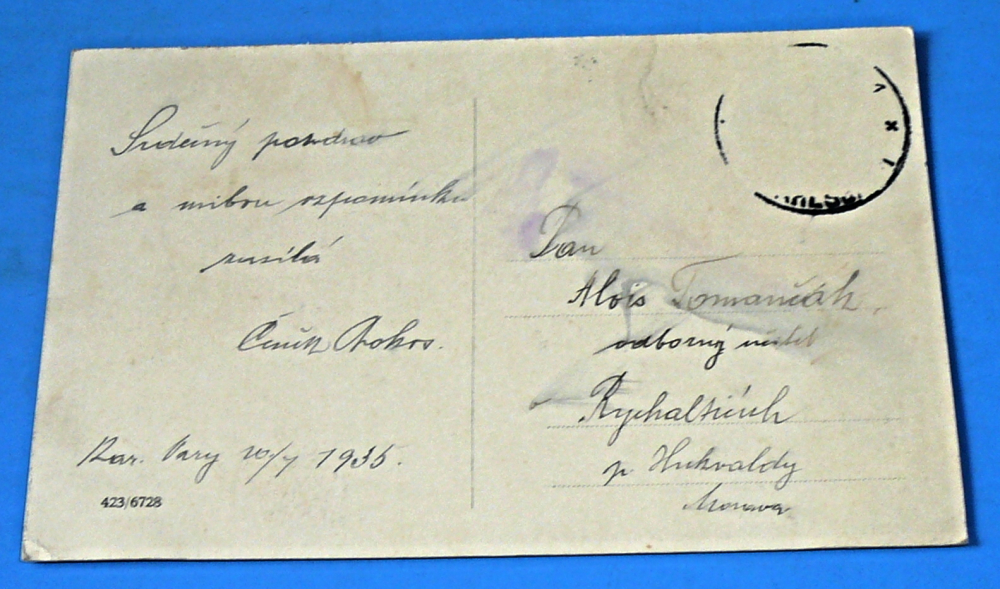 Srdečný pozdrav
a milou vzpomínku
zasílá
Čeněk
Kar. Vary 10/7 1935.
423/6728
Pan
Alois Tomančák,
odborný učitel
Rychalticích
p. Hukvaldy
Morava
V
X
I